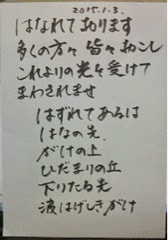 2015.1.3.
はなれております
多くの方々 皆々おこし
これよりの光を受けて
まわされませ
はずれてあるは
はなの光
がけの上
ひだまりの丘
下りたる光
波はげしきがけ